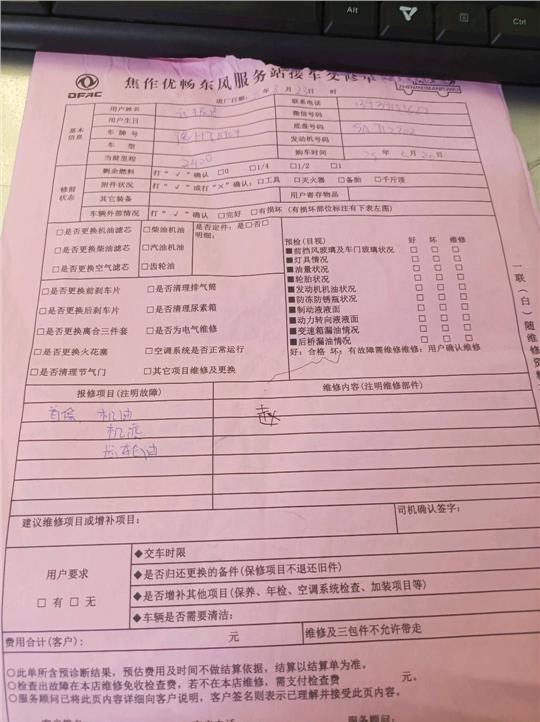 Alt
Ctrl
DFAC
焦作优畅东风服务站接车交修单
进厂日期: 月 23日 时
基本信息
用户姓名
联系电话
用户生日
微信号码
车牌号
底盘号码
车型
发动机号码
当前里程 2400
购车时间
修前状态
剩余燃料 打"√"确认 □0 □1/4 □1/2 □1
附件状况 打"√"或打"×"确认: □工具 □灭火器 □备胎 □千斤顶
其它装备
用户寄存物品
车辆外部情况 打"√"确认 □完好 □有损坏 (有损坏部位标注有下表左图)
□是否更换机油滤芯 □柴油机油 是否定件: 是□否□
明细:
□是否更换柴油滤芯 □汽油机油
□是否更换空气滤芯 □齿轮油
□是否更换前刹车片 □是否清理排气筒
□是否更换后刹车片 □是否清理尿素箱
□是否更换离合三件套 □是否为电气维修
□是否更换火花塞 □空调系统是否正常运行
□是否清理节气门 □其它项目维修及更换
预检(目视) 好 坏 维修
■前挡风玻璃及车门玻璃状况 □ □ □
■灯具情况 □ □ □
■油量状况 □ □ □
■轮胎状况 □ □ □
■发动机机油状况 □ □ □
■防冻防锈瓶状况 □ □ □
■制动液液面 □ □ □
■动力转向液液面 □ □ □
■变速箱漏油情况 □ □ □
■后桥漏油情况 □ □ □
好: 合格 坏: 有故障需维修维修: 用户确认维修
一联(白)随维修资料
报修项目(注明故障) 维修内容(注明维修部件)
首保 机油
机滤
齿轮油
建议维修项目或增补项目:
司机确认签字:
用户要求
□ 有 □ 无
◆交车时限
◆是否归还更换的备件(保修项目不退还旧件)
◆是否增补其他项目(保养、年检、空调系统检查、加装项目等)
◆车辆是否需要清洁:
费用合计(客户): 元
维修及三包件不允许带走
○此单所含预诊断结果,预估费用及时间不做结算依据,结算以结算单为准。
○检查出故障在本店维修免收检查费,若不在本店维修,需支付检查费 元。
○服务顾问已将此页内容详细向客户说明,客户签名则表示已理解并接受此页内容。
服务顾问: